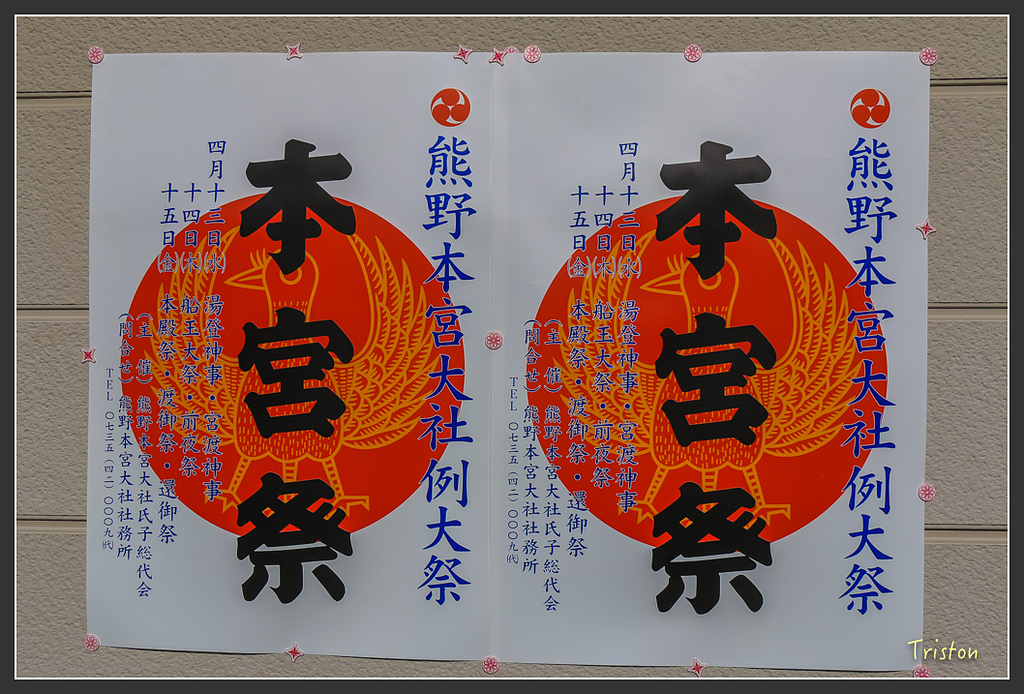 熊野本宮大社例大祭
本宮祭
四月十三日㈬ 湯登神事・宮渡神事
十四日㈭ 船玉大祭・前夜祭
十五日㈮ 本殿祭・渡御祭・還御祭
（主催）熊野本宮大社氏子総代会
（問合せ）熊野本宮大社社務所
TEL 〇七三五（四二）〇〇〇九㈹
熊野本宮大社例大祭
本宮祭
四月十三日㈬ 湯登神事・宮渡神事
十四日㈭ 船玉大祭・前夜祭
十五日㈮ 本殿祭・渡御祭・還御祭
（主催）熊野本宮大社氏子総代会
（問合せ）熊野本宮大社社務所
TEL 〇七三五（四二）〇〇〇九㈹
Triston